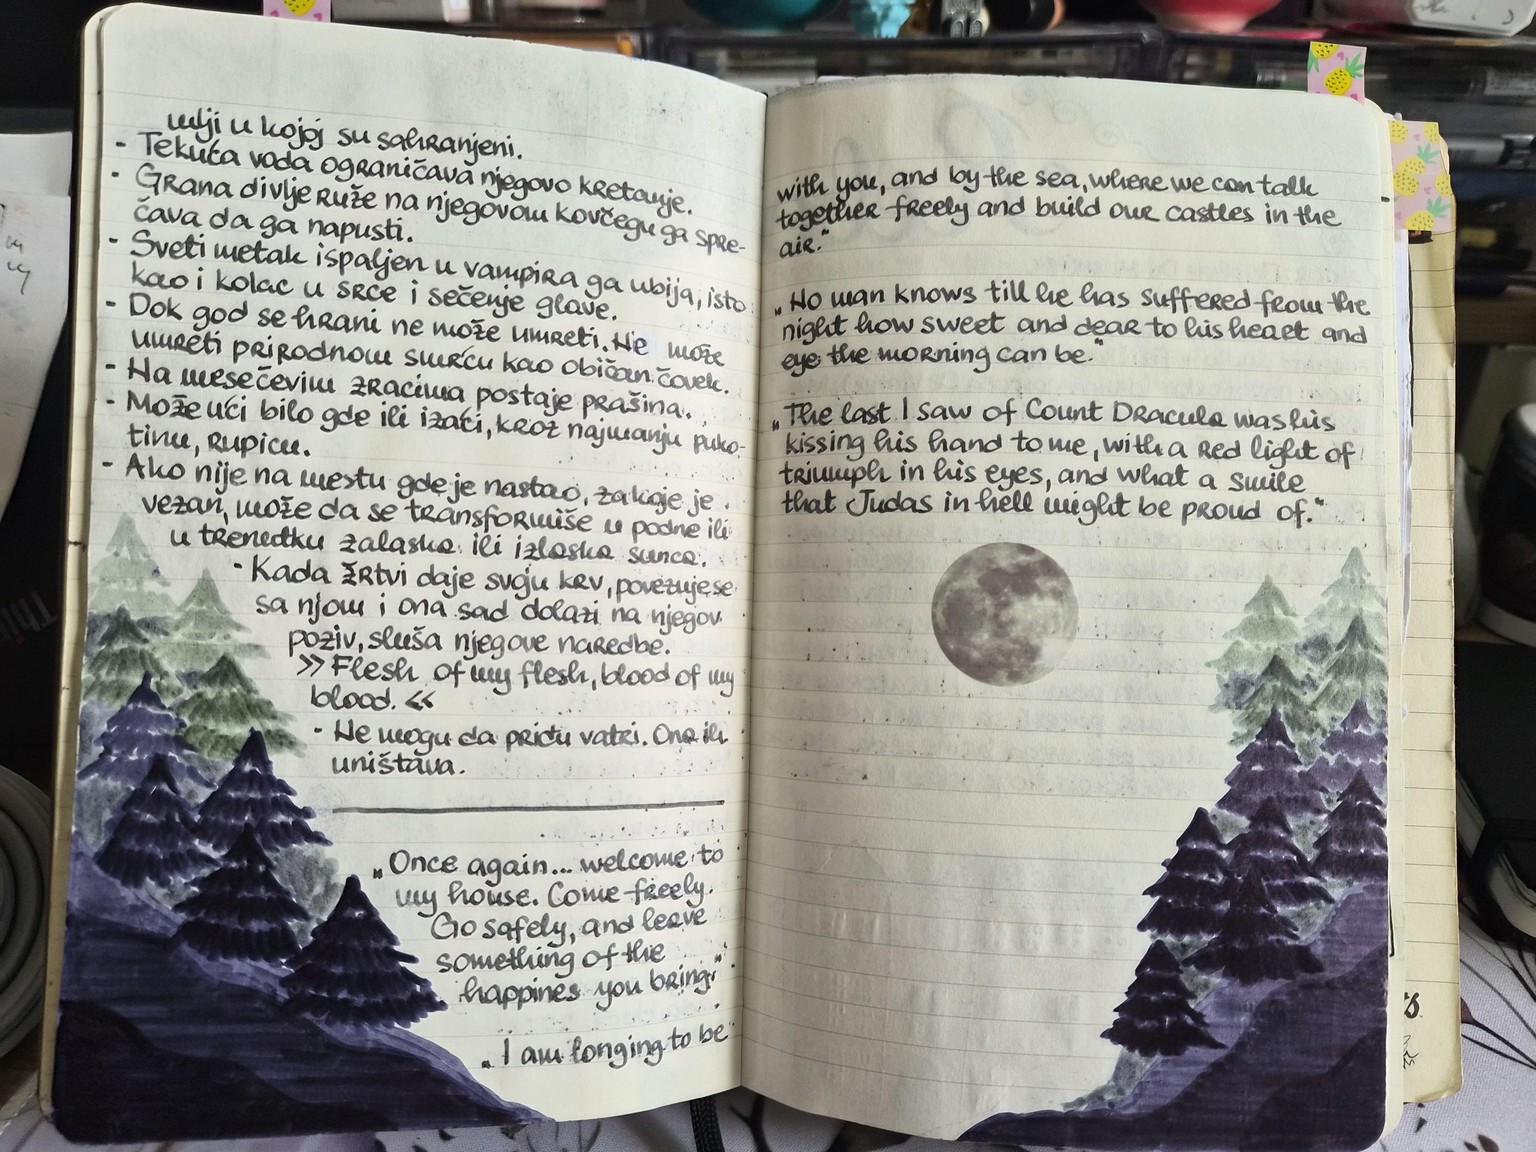 mlji u kojoj su sahranjeni.
- Tekuća voda ograničava njegovo kretanje.
- Grana divlje ruže na njegovom kovčegu ga spre-
čava da ga napusti.
- Sveti metak ispaljen u vampira ga ubija, isto
kao i kolac u srce i sečenje glave.
- Dok god se hrani ne može umreti. Ne može
umreti prirodnom smrću kao običan čovek.
- Na mesečevim zracima postaje prašina.
- Može ući bilo gde ili izaći, kroz najmanju puko-
tinu, rupicu.
- Ako nije na mestu gde je nastao, za koje je
vezan, može da se transformiše u podne ili
u trenutku zalaska ili izlaska sunca.
- Kada žrtvi daje svoju krv, povezuje se
sa njom i ona sad dolazi na njegov
poziv, sluša njegove naredbe.
» Flesh of my flesh, blood of my
blood. «
- Ne mogu da priđu vatri. Ona ih
uništava.
„Once again... welcome to
my house. Come freely.
Go safely, and leave
something of the
happines you bring."
„I am longing to be
with you, and by the sea, where we can talk
together freely and build our castles in the
air."
„No man knows till he has suffered from the
night how sweet and dear to his heart and
eye the morning can be."
„The last I saw of Count Dracula was his
kissing his hand to me, with a red light of
triumph in his eyes, and what a smile
that Judas in hell might be proud of."